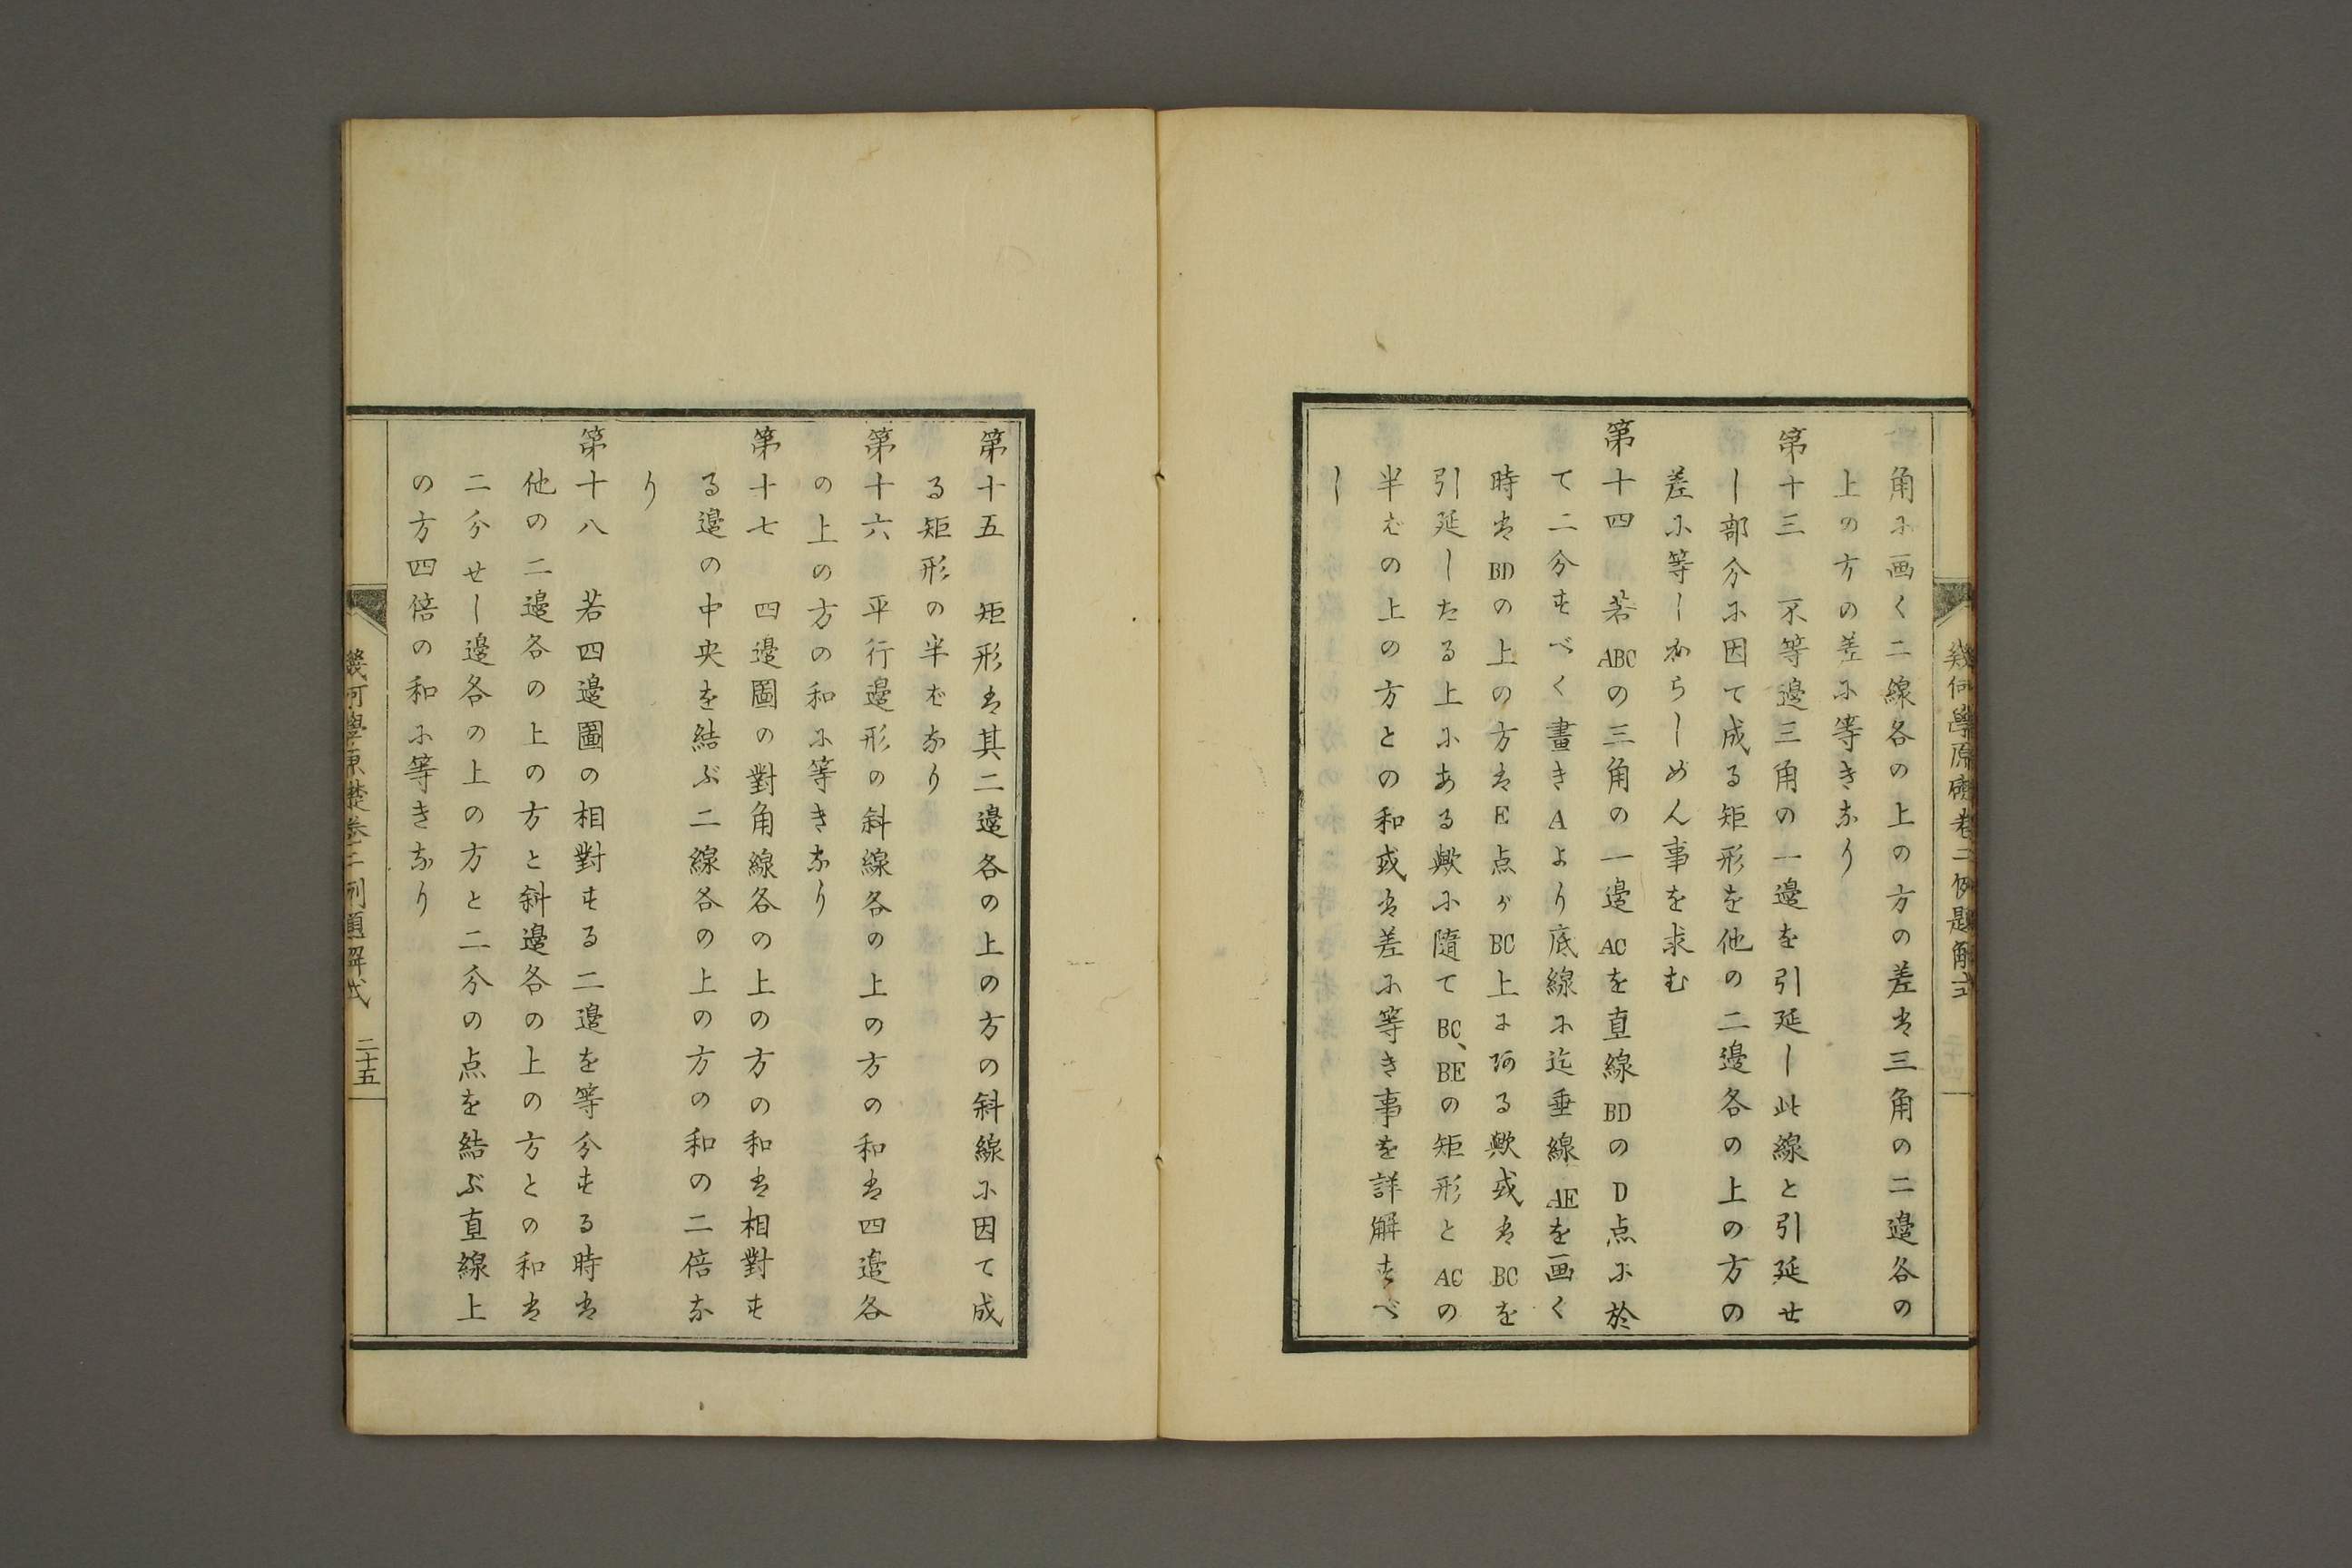 角に画く二線各の上の方の差は三角の二邉各の
上の方の差に等きなり
第十三　不等邉三角の一邉を引延し此線と引延せ
し部分に因て成る矩形を他の二邉各の上の方の
差に等しからしめん事を求む
第十四　若ABCの三角の一邉ACを直線BDのD点に於
て二分すべく畫きAより底線に迄垂線AEを画く
時はBDの上の方はE点がBC上に阿る歟或はBCを
引延したる上にある歟に隨てBC、BEの矩形とACの
半ばの上の方との和或は差に等き事を詳解すべ
し
幾何學原礎巻二例題解式
第十五　矩形は其二邉各の上の方の斜線に因て成
る矩形の半ばなり
第十六　平行邉形の斜線各の上の方の和は四邉各
の上の方の和に等きなり
第十七　四邉圖の對角線各の上の方の和は相對す
る邉の中央を結ぶ二線各の上の方の和の二倍な
り
第十八　若四邉圖の相對する二邉を等分する時は
他の二邉各の上の方と斜邉各の上の方との和は
二分せし邉各の上の方と二分の点を結ぶ直線上
の方四倍の和に等きなり
幾何學原礎巻二例題解式　二十五